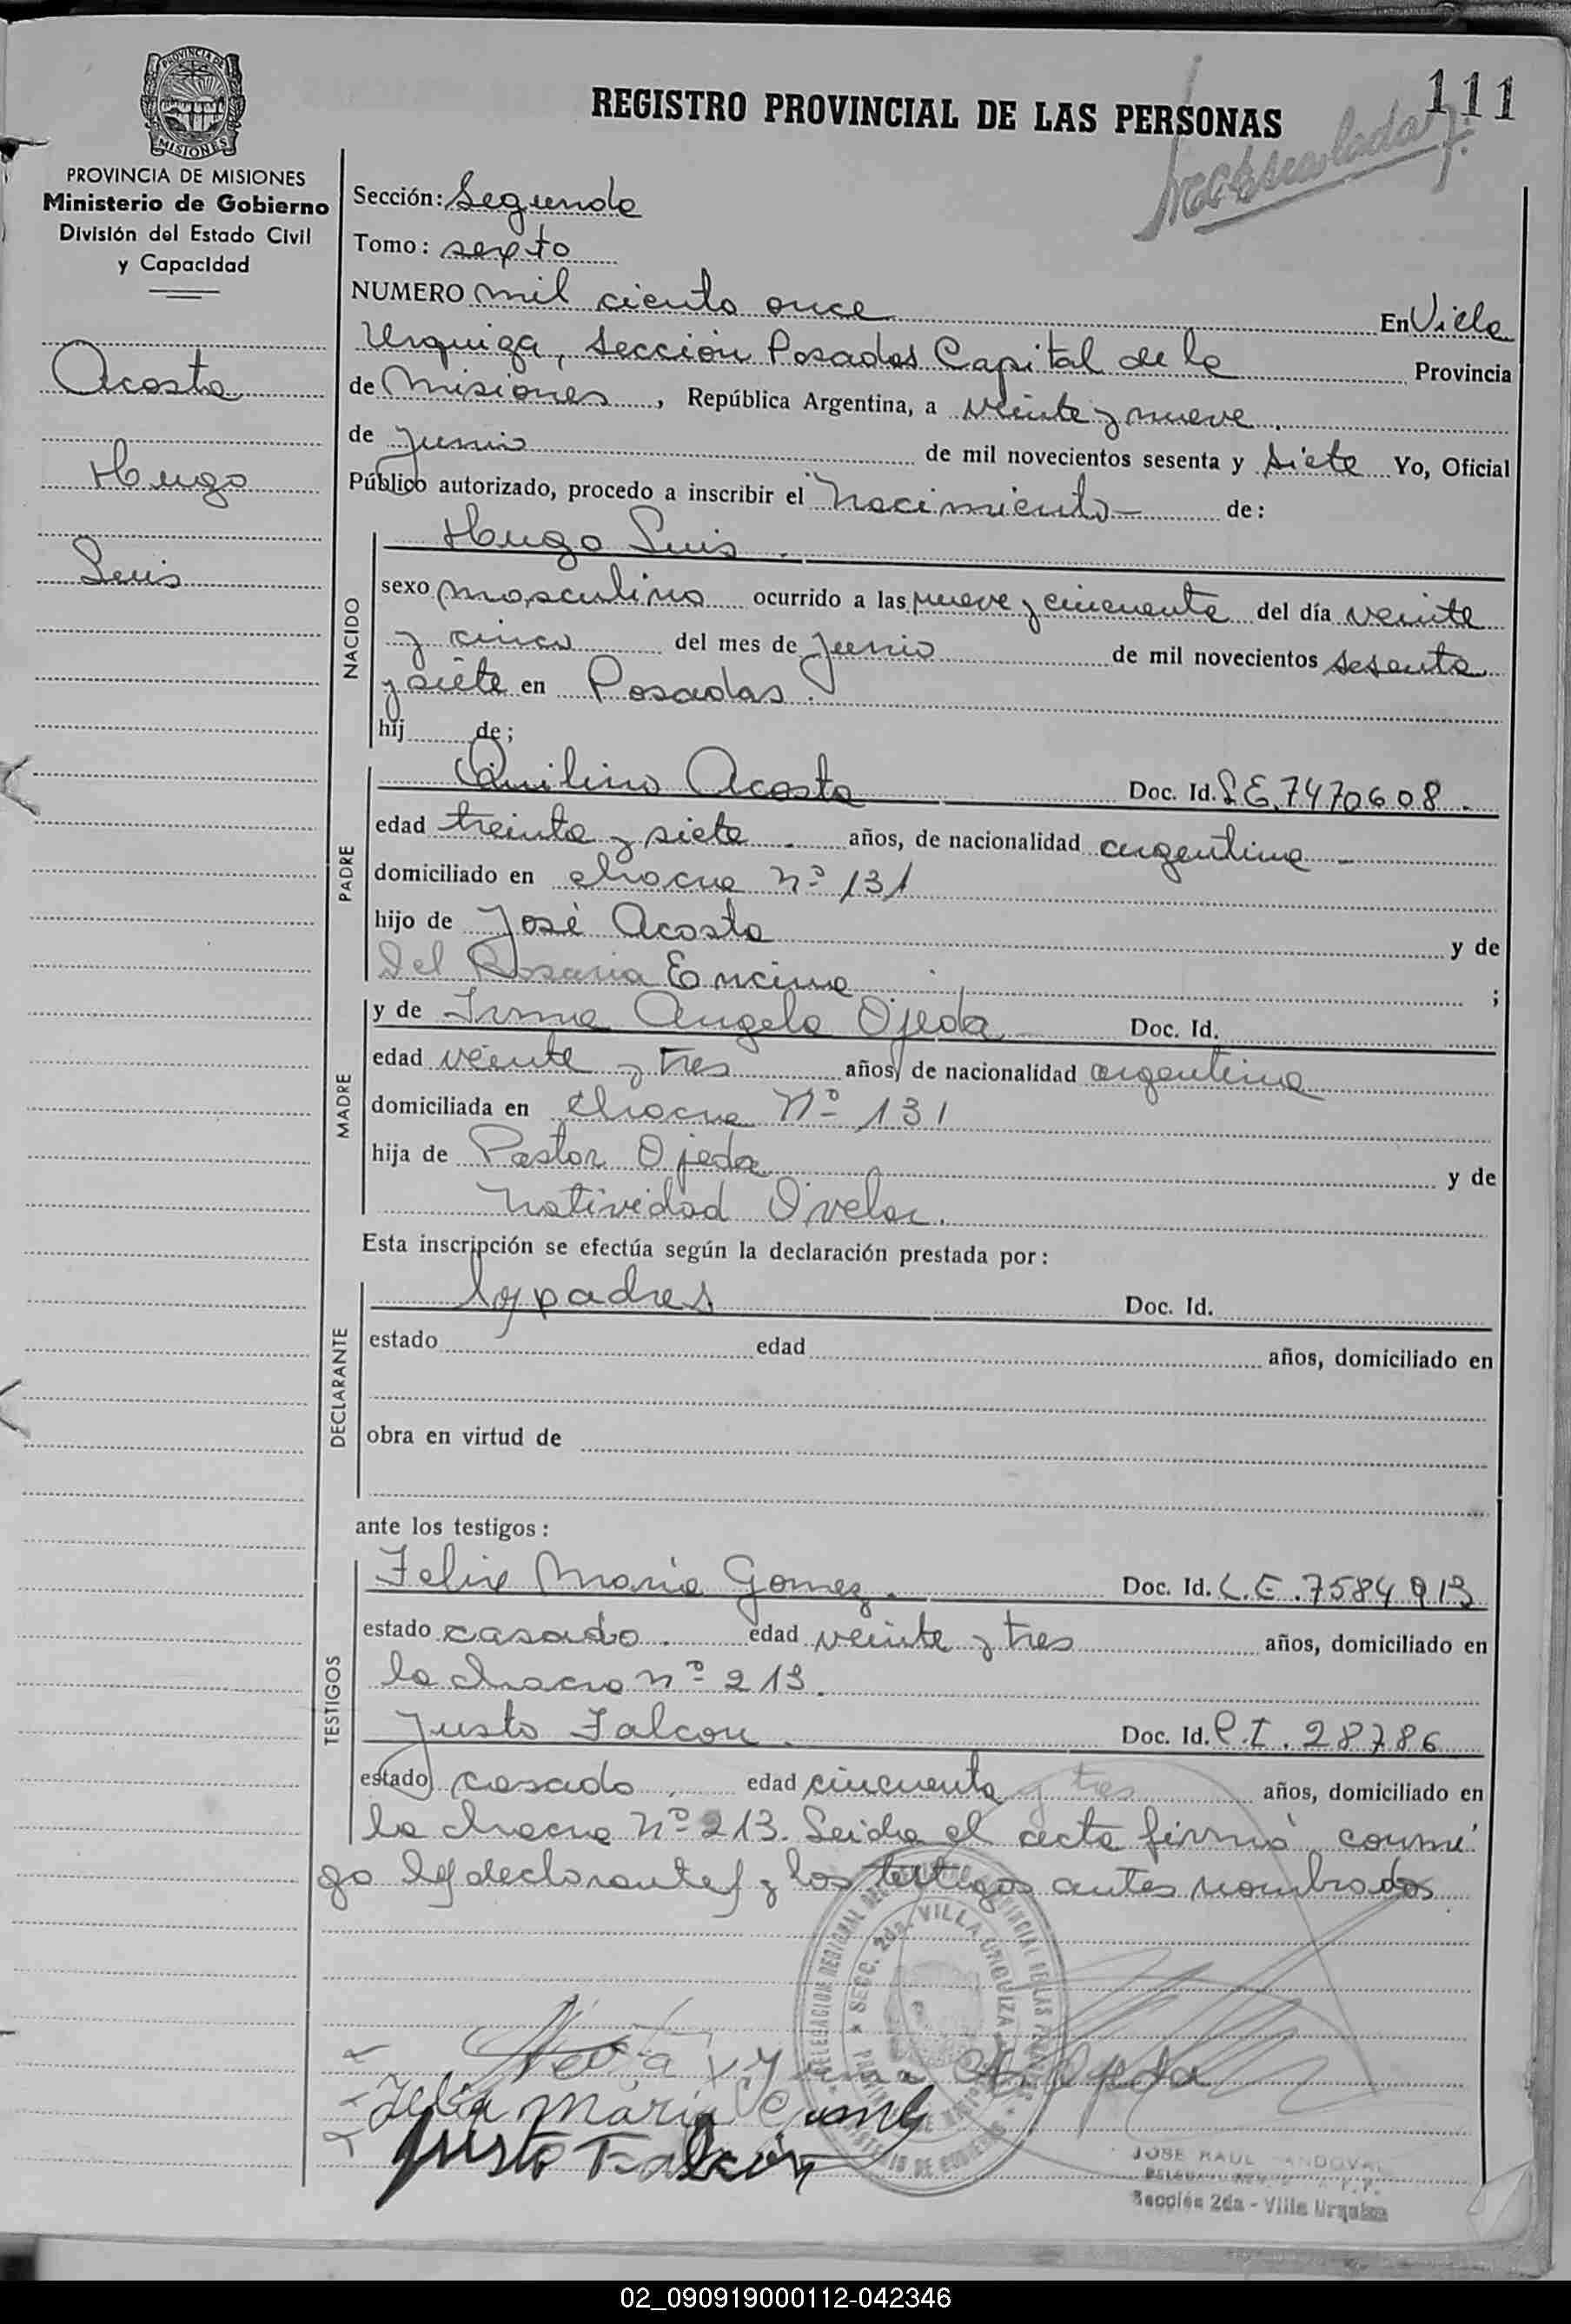 111
REGISTRO PROVINCIAL DE LAS PERSONAS
PROVINCIA DE
MISIONES
PROVINCIA DE MISIONES
Ministerio de Gobierno
División del Estado Civil
y Capacidad
Acosta
Hugo
Luis
Sección: Segunda
Tomo: sexto
NUMERO mil ciento once En Villa
Urquiza, Sección Posadas Capital de la Provincia
de Misiones, República Argentina, a veinte y nueve.
de Junio de mil novecientos sesenta y siete Yo, Oficial
Público autorizado, procedo a inscribir el Nacimiento - de:
NACIDO
Hugo Luis.
sexo masculino ocurrido a las nueve y cincuenta del día veinte
y cinco del mes de Junio de mil novecientos sesenta
y siete en Posadas.
hij de;
PADRE
Acosta Doc. Id. L.E. 7470608.
edad treinta y siete. años, de nacionalidad argentina -
domiciliado en chacra Nº 131
hijo de José Acosta y de
Del Rosaria Encina ;
MADRE
y de Irma Angela Ojeda Doc. Id.
edad veinte y tres años, de nacionalidad argentina
domiciliada en chacra Nº 131
hija de Pastor Ojeda y de
Natividad Ovelar.
Esta inscripción se efectúa según la declaración prestada por:
DECLARANTE
los padres Doc. Id.
estado edad años, domiciliado en
obra en virtud de
ante los testigos:
TESTIGOS
Felix Maria Gomez. Doc. Id. L.E. 7584913
estado casado. edad veinte y tres años, domiciliado en
la chacra nº 213.
Justo Falcon. Doc. Id. C.I. 28786
estado casado, edad cincuenta y tres años, domiciliado en
la chacra Nº 213. Leida el acta firmó conmi
go los declarantes y los testigos antes nombrados
DELEGACION REGIONAL DEL PROVINCIAL DE LAS PERSONAS
SECC. 2da. VILLA URQUIZA
Ojeda
Felix María Gomez
Justo Falcon
JOSE RAUL SANDOVAL
Sección 2da - Villa Urquiza
02_090919000112-042346